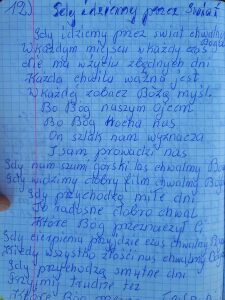 12) Gdy idziemy przez świat
Gdy idziemy przez świat chwalmy Boga
W każdym miejscu w każdy czas
nie ma w życiu zbędnych dni
Każda chwila ważna jest
W każdej zobacz Bożą myśl.
Bo Bóg naszym Ojcem
Bo Bóg kocha nas
On szlak nam wyznacza
I sam prowadzi nas
Gdy nam szumi górski las chwalmy Boga
Gdy widzimy dobry film chwalmy Bo
Gdy przychodzą miłe dni
To radosne dobro chwal
Które Bóg przeznaczył Ci
Gdy cierpienia przyjdzie czas chwalmy Bo
Kiedy wszystko złości nas chwalmy Boga
Gdy przychodzą smutne dni
Przyjmij trudne też
Które Bóg